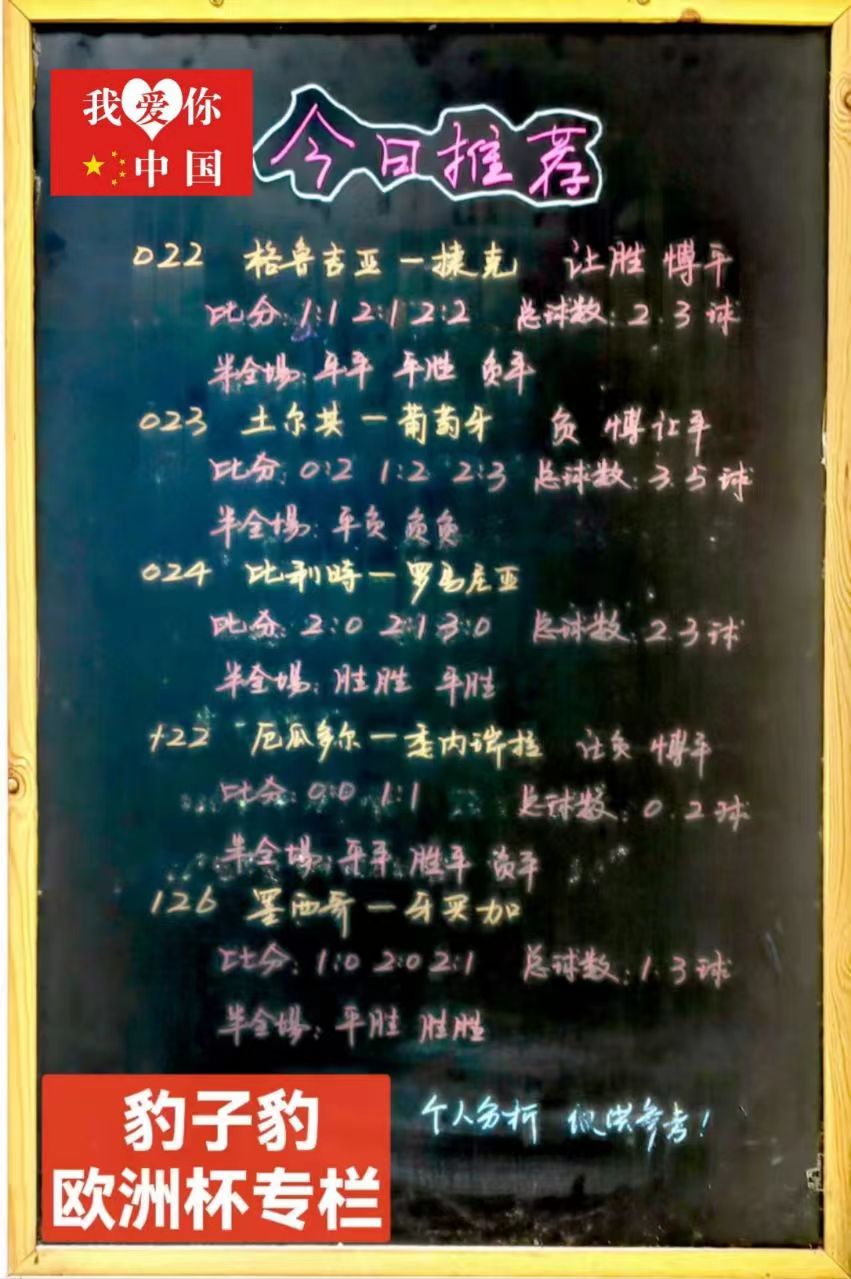 我爱你
中国
今日推荐
022 格鲁吉亚一捷克 让胜 博平
比分: 1:1 2:1 2:2 总球数: 2.3球
半全場: 平平 平胜 负平
023 土尔其一葡萄牙 负 博让平
比分: 0:2 1:2 2:3 总球数: 3.5球
半全場: 平负 负负
024 比利時一罗马尼亚
比分: 2:0 2:1 3:0 总球数: 2.3球
半全場: 胜胜 平胜
122 厄瓜多尔一委内瑞拉 让负 博平
比分: 0:0 1:1 总球数: 0.2球
半全場: 平平 胜平 负平
126 墨西哥一牙买加
比分: 1:0 2:0 2:1 总球数: 1.3球
半全場: 平胜 胜胜
个人分析 仅供参考!
豹子豹
欧洲杯专栏